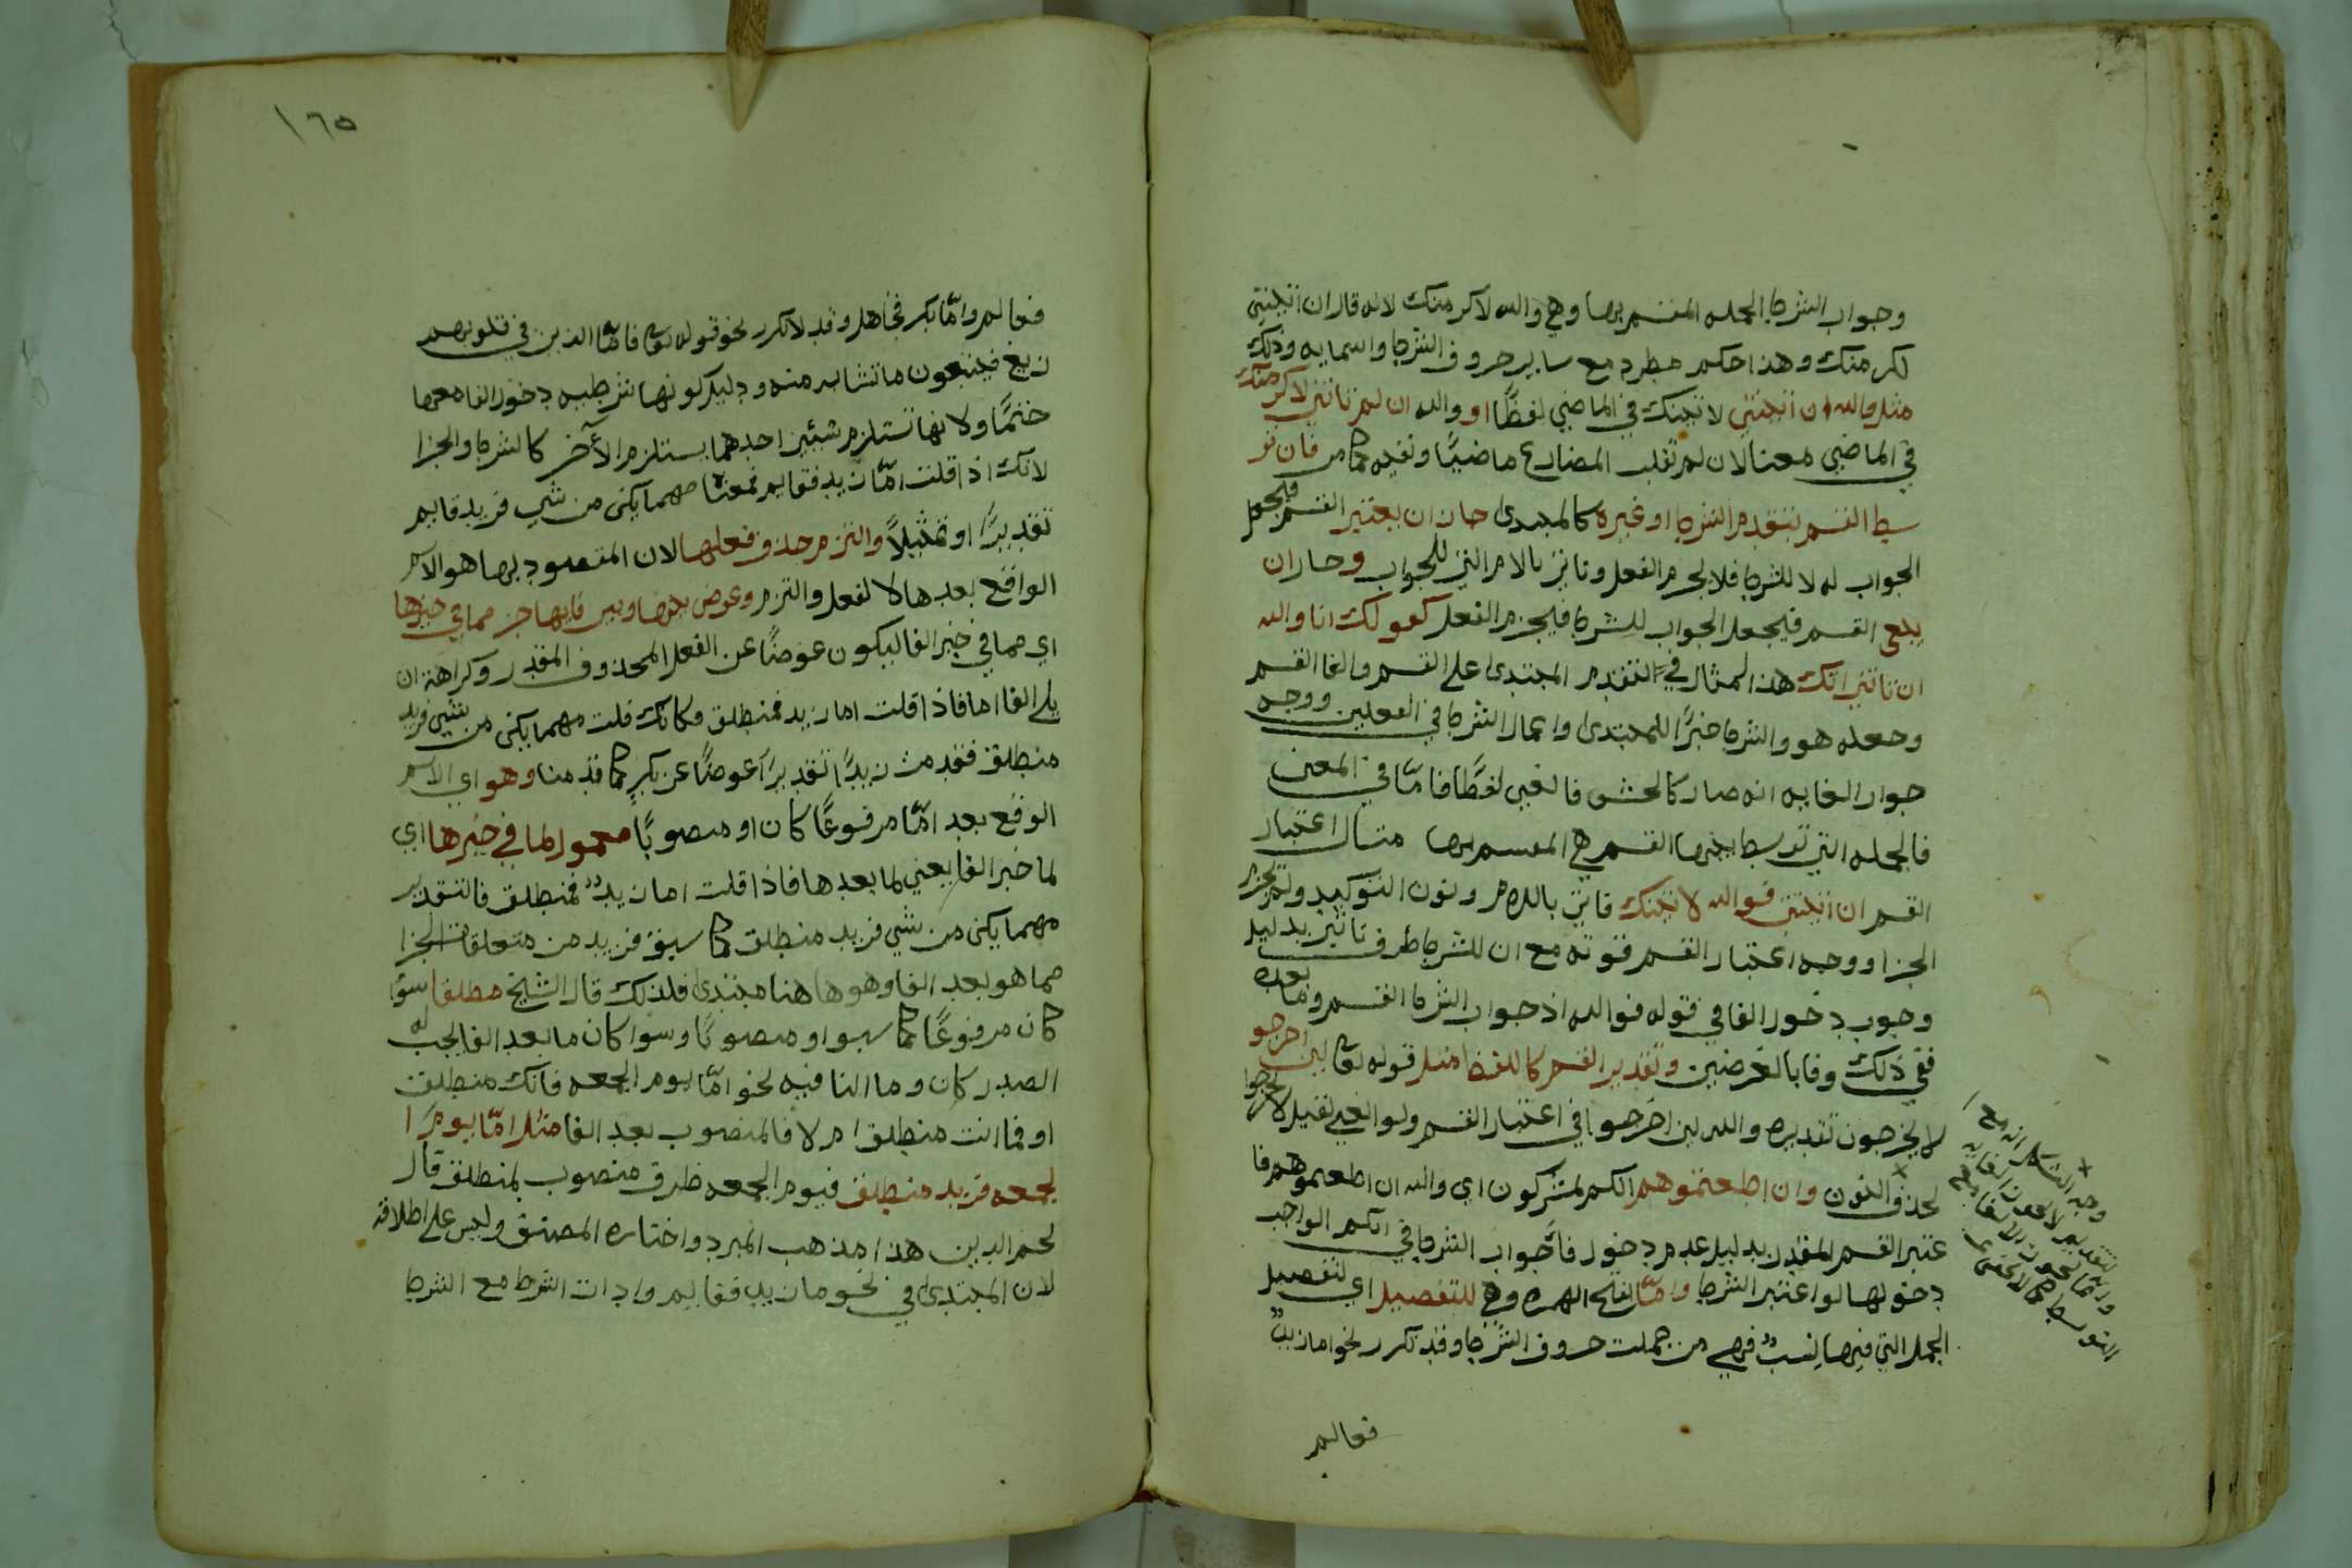 وجواب الشرط الجمله المقسم بها وهي والله لاكرمنك لانه قال ان اتيتني
لاكرمنك وهذا حكم مطرد مع ساير حروف الشرط واسمايه وذلك
مثل والله ان اتيتني لاتيتك في الماضي لفظًا او والله ان لم تاتني لاكرمنك
في الماضي معنا لان لم تقلب المضارع ماضيًا وتفيه كما مر فان تو
سط القسم بتقدم الشرط او غيره كالمبتدى جاز ان يعتبر القسم فيجعل
الجواب له لا للشرط فلا يجزم الفعل وتاتي بالام التي للجواب وجاز ان
يلغى القسم فيجعل الجواب للشرط فيجزم الفعل كقولك انا والله
ان تاتني اتك هذا المثال في التقدم المبتدى على القسم والغا القسم
وجعله هو والشرط خبرًا للمبتدى واعمال الشرط في الفعلين ووجه
جواز الغايه انه صار كالحشو فالغي لفظًا فامّا في المعنى
فالجمله التي توسط بينها القسم هي المقسم بها مثال اعتبار
القسم ان اتيتني فوالله لاتيتك فاتي باللام ونون التوكيد ولم يجزم
الجزا ووجه اعتبار القسم قوته مع ان للشرط طرف تاثير بدليل
وجوب دخول الفا في قوله فوالله اذ جواب الشرط القسم وما بعده
ففي ذلك وفا بالغرضين وتقدير القسم كاللفظ مثل قوله تعالى لين اخرجو
لا يخرجون تقديره والله لين اخرجوا في اعتبار القسم ولو الغي لقيل لا يخرجوا
بحذف النون وان اطعتموهم انكم لمشركون اي والله ان اطعتموهم فا
عتبر القسم المقدر بدليل عدم دخول فا جواب الشرط في انكم الواجب
دخولها لو اعتبر الشرط وامّا بفتح الهمزه وهي للتفصيل اي لتفصيل
الجمل التي فيها لبس فهي من جملت حروف الشرط وقد تكرر نحو اما زيدٌ
فقايم
وجه
التقدير
١٦٥
فقايم وامّا بكر فجاهل وقد لا تكرر نحو قوله تعالى فامّا الذين في قلوبهم
زيغ فيتبعون ما تشابه منه ودليل كونها شرطيه دخول الفا معها
حتمًا ولانها تستلزم شيئين احدهما يستلزم الآخر كالشرط والجزا
لانك اذا قلت امّا زيد فقايم فمعناه مهما يكن من شي فزيد قايم
تقديرًا او تمثيلاً والتزم حذف فعلها لان المقصود بها هو الاسم
الواقع بعدها لا لفعل والتزم وعوض بينها وبين فايها جز مما في حيزها
اي مما في خبر الفا ليكون عوضًا عن الفعل المحذوف المقدر وكراهة ان
يلي الفا اما فاذا قلت اما زيد فمنطلق وكانك قلت مهما يكن من شي فزيد
منطلق فقدمت زيدًا تقديرًا عوضًا عن يكن كما قدمنا وهو اي الاسم
الوقع بعد امّا مرفوعًا كان او منصوبًا معمول لما في حيزها اي
لما خبر الفا يعني لما بعدها فاذا قلت اما زيدٌ فمنطلق فالتقدير
مهما يكن من شي فزيد منطلق كما سبق فزيد من متعلقات الجزا
مما هو بعد الفا وهو هاهنا مبتدى فلذلك قال الشيخ مطلقا سوًا
كان مرفوعًا كما سبق او منصوبًا وسوا كان ما بعد الفا يجب له
الصدر كان وما النافيه نحو امّا يوم الجمعه فانك منطلق
او فما انت منطلق ام لا فالمنصوب بعد الفا مثل امّا يوم ا
لجمعه فزيد منطلق فيوم الجمعه ظرف منصوب بمنطلق قال
نجم الدين هذا مذهب المبرد واختاره المصنف وليس على اطلاقه
لان المبتدى في نحو اما زيد فقايم وادات الشرط مع الشرط